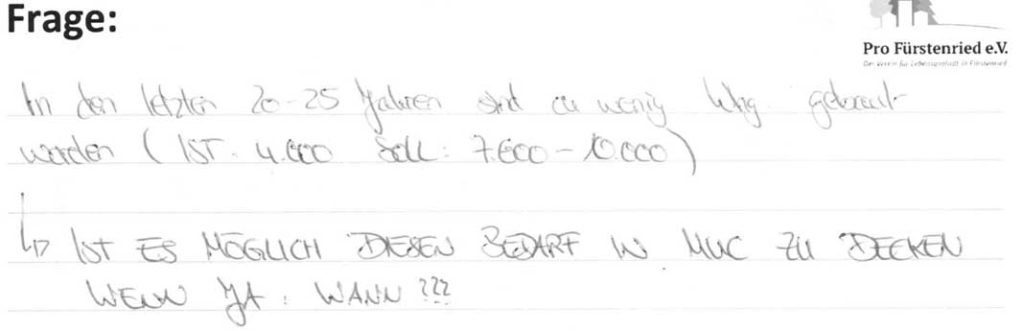 Frage:
Pro Fürstenried e.V.
Der Verein für Lebensqualität in Fürstenried
In den letzten 20-25 Jahren sind zu wenig Whg. gebaut
worden (IST: 4.000 Soll: 7.600 - 10.000)
↳ IST ES MÖGLICH DIESEN BEDARF IN MUC ZU DECKEN
WENN JA: WANN ???